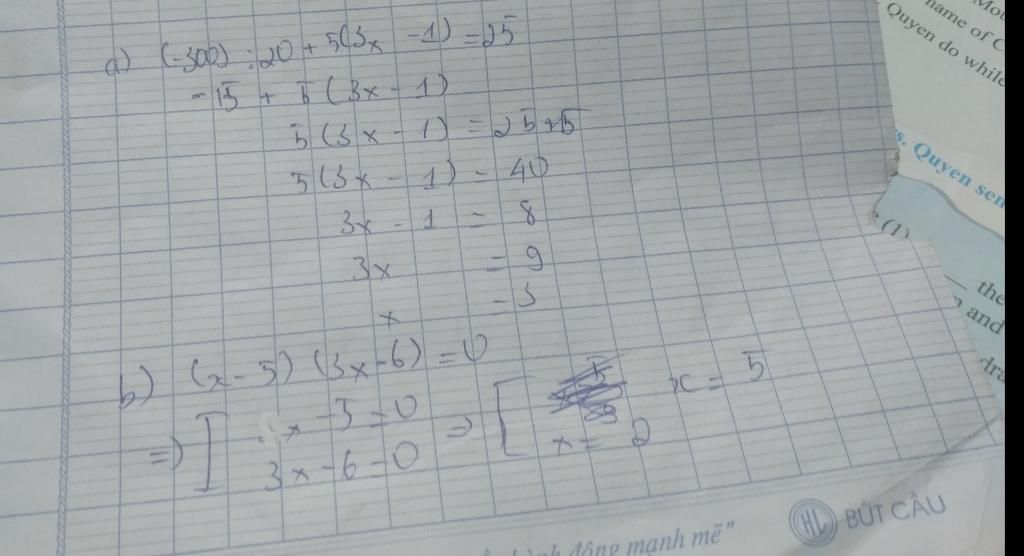 a) (-300) : 20 + 5(3x - 1) = 25
-15 + 5 (3x - 1)
5 (3x - 1) = 25 + 15
5 (3x - 1) = 40
3x - 1 = 8
3x = 9
x = 3
b) (x - 5) (3x - 6) = 0
=> [ x - 5 = 0 => [ x = 5
3x - 6 = 0 x = 2
Mou
name of C
Quyen do while
s. Quyen sen
(1)
the
and
dra
HL BÚT CẦU
động mạnh mẽ"